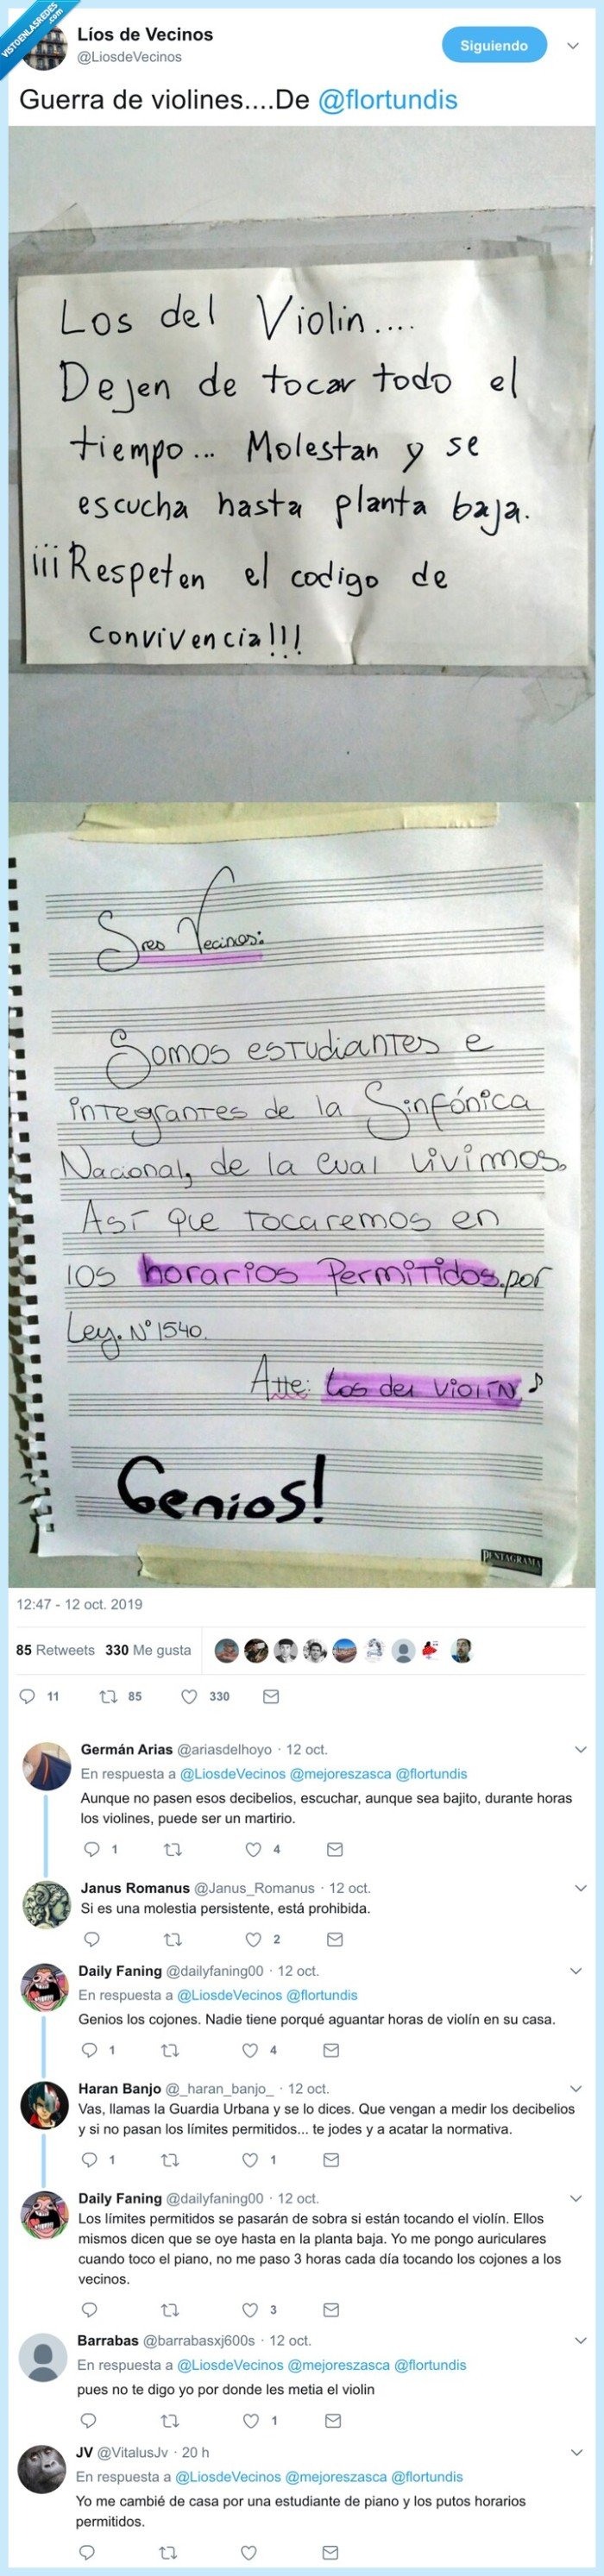 VISTOENLASREDES
.com
Líos de Vecinos
@LiosdeVecinos
Siguiendo
Guerra de violines....De @flortundis
Los del Violin....
Dejen de tocar todo el
tiempo... Molestan y se
escucha hasta planta baja.
¡¡¡Respeten el codigo de
convivencia!!!
Sres Vecinos:
Somos estudiantes e
integrantes de la Sinfónica
Nacional, de la cual vivimos.
Así que tocaremos en
los horarios Permitidos.por
Ley. N°1540.
Atte: Los del violín ♪
Genios!
PENTAGRAMA
12:47 - 12 oct. 2019
85 Retweets 330 Me gusta
11 85 330
Germán Arias @ariasdelhoyo · 12 oct.
En respuesta a @LiosdeVecinos @mejoreszasca @flortundis
Aunque no pasen esos decibelios, escuchar, aunque sea bajito, durante horas
los violines, puede ser un martirio.
1 4
Janus Romanus @Janus_Romanus · 12 oct.
Si es una molestia persistente, está prohibida.
2
Daily Faning @dailyfaning00 · 12 oct.
En respuesta a @LiosdeVecinos @flortundis
Genios los cojones. Nadie tiene porqué aguantar horas de violín en su casa.
1 4
Haran Banjo @_haran_banjo_ · 12 oct.
Vas, llamas la Guardia Urbana y se lo dices. Que vengan a medir los decibelios
y si no pasan los límites permitidos... te jodes y a acatar la normativa.
1 1
Daily Faning @dailyfaning00 · 12 oct.
Los límites permitidos se pasarán de sobra si están tocando el violín. Ellos
mismos dicen que se oye hasta en la planta baja. Yo me pongo auriculares
cuando toco el piano, no me paso 3 horas cada día tocando los cojones a los
vecinos.
3
Barrabas @barrabasxj600s · 12 oct.
En respuesta a @LiosdeVecinos @mejoreszasca @flortundis
pues no te digo yo por donde les metia el violin
1
JV @VitalusJv · 20 h
En respuesta a @LiosdeVecinos @mejoreszasca @flortundis
Yo me cambié de casa por una estudiante de piano y los putos horarios
permitidos.